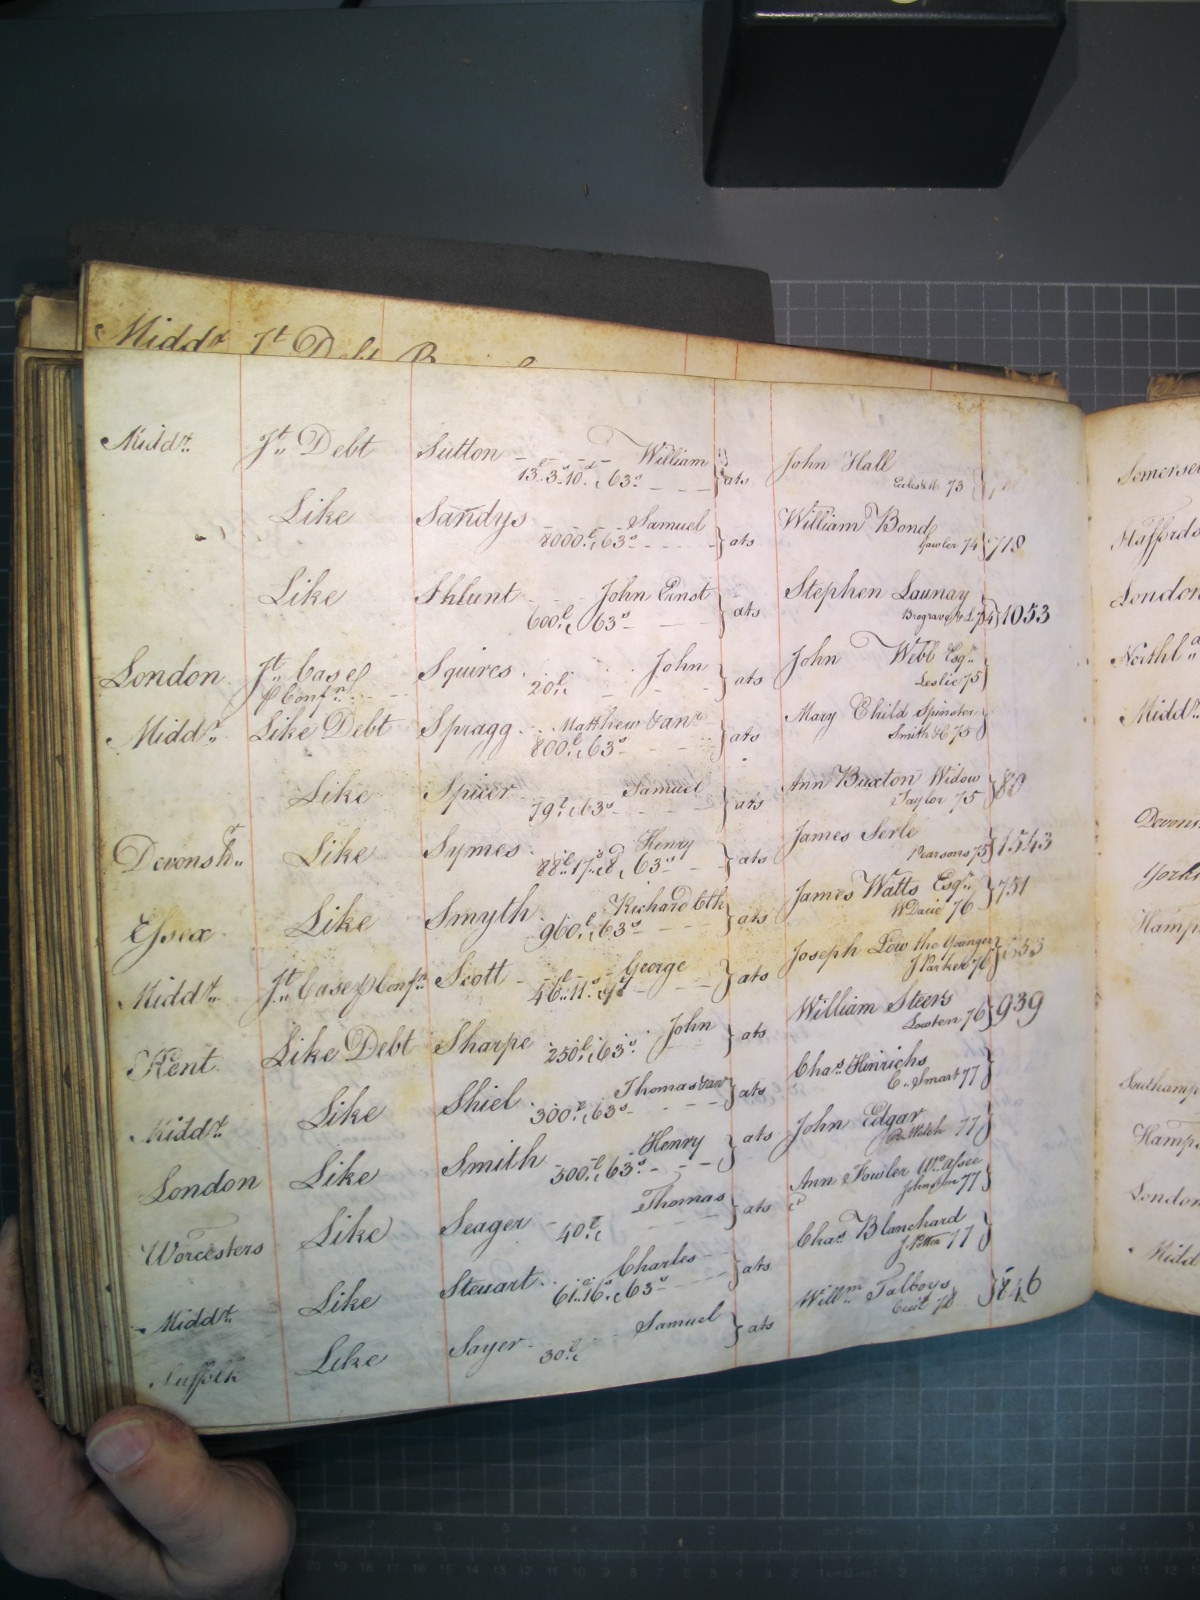 Middx Jt Debt
Middx Jt Debt Sutton William
13 3 10 & 63s ats John Hall
73
Like Sandys Samuel
8000l & 63s ats William Bond
Gawler 74 718
Like Shlunt John Ernst
600l & 63s ats Stephen Launay
74 1053
London Jt Case p Confn Squires John
20l ats John Webb Esqr
Leslie 75
Middx Like Debt Spragg Matthew & anr
800l & 63s ats Mary Child Spinster
Smith & Co 75
Like Spicer Samuel
79l & 63s ats Ann Buxton Widow
Taylor 75 80
Devonshr Like Symes Henry
88l 17s 8 & 63s ats James Serle
Pearsons 75 1543
Essex Like Smyth Richard Clk
960l & 63s ats James Watts Esqr
W Dacie 76 751
Middx Jt Case p Confn Scott George
46l 11s 9d ats Joseph Low the Younger
J Parker 76
Kent Like Debt Sharpe John
250l & 63s ats William Steers
Lowten 76 939
Middx Like Shiel Thomas & anr
300l & 63s ats Chas Heinrichs
C. Smart 77
London Like Smith Henry
500l & 63s ats John Edgar
77
Worcesters Like Seager Thomas
40l & ats Ann Fowler Wo
Johnston 77
Middx Like Steuart Charles
61l 16s & 63s ats Chas Blanchard
77
Suffolk Like Sayer Samuel
30l & ats Willm Talboys
Cecil 78 846
Somerset
Staffords
London
Northld
Middx
Devons
Yorks
Hamps
Southamp
Hamps
London
Midd